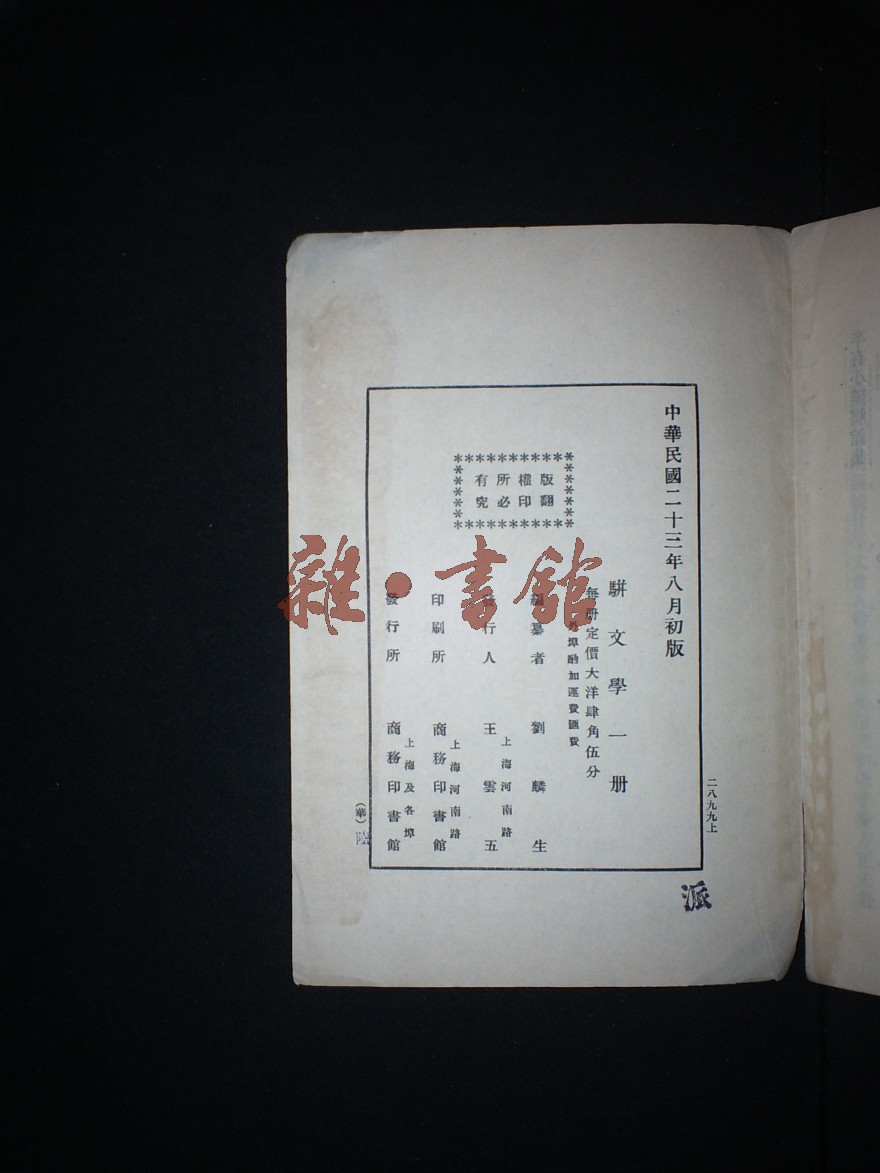 中華民國二十三年八月初版
二八九九上
駢文學一册
每册定價大洋肆角伍分
外埠酌加運費匯費
版權所有
翻印必究
編纂者 劉麟生
發行人 王雲五
上海河南路
印刷所 商務印書館
上海河南路
發行所 商務印書館
上海及各埠
(華)
陸
派
雜·書館